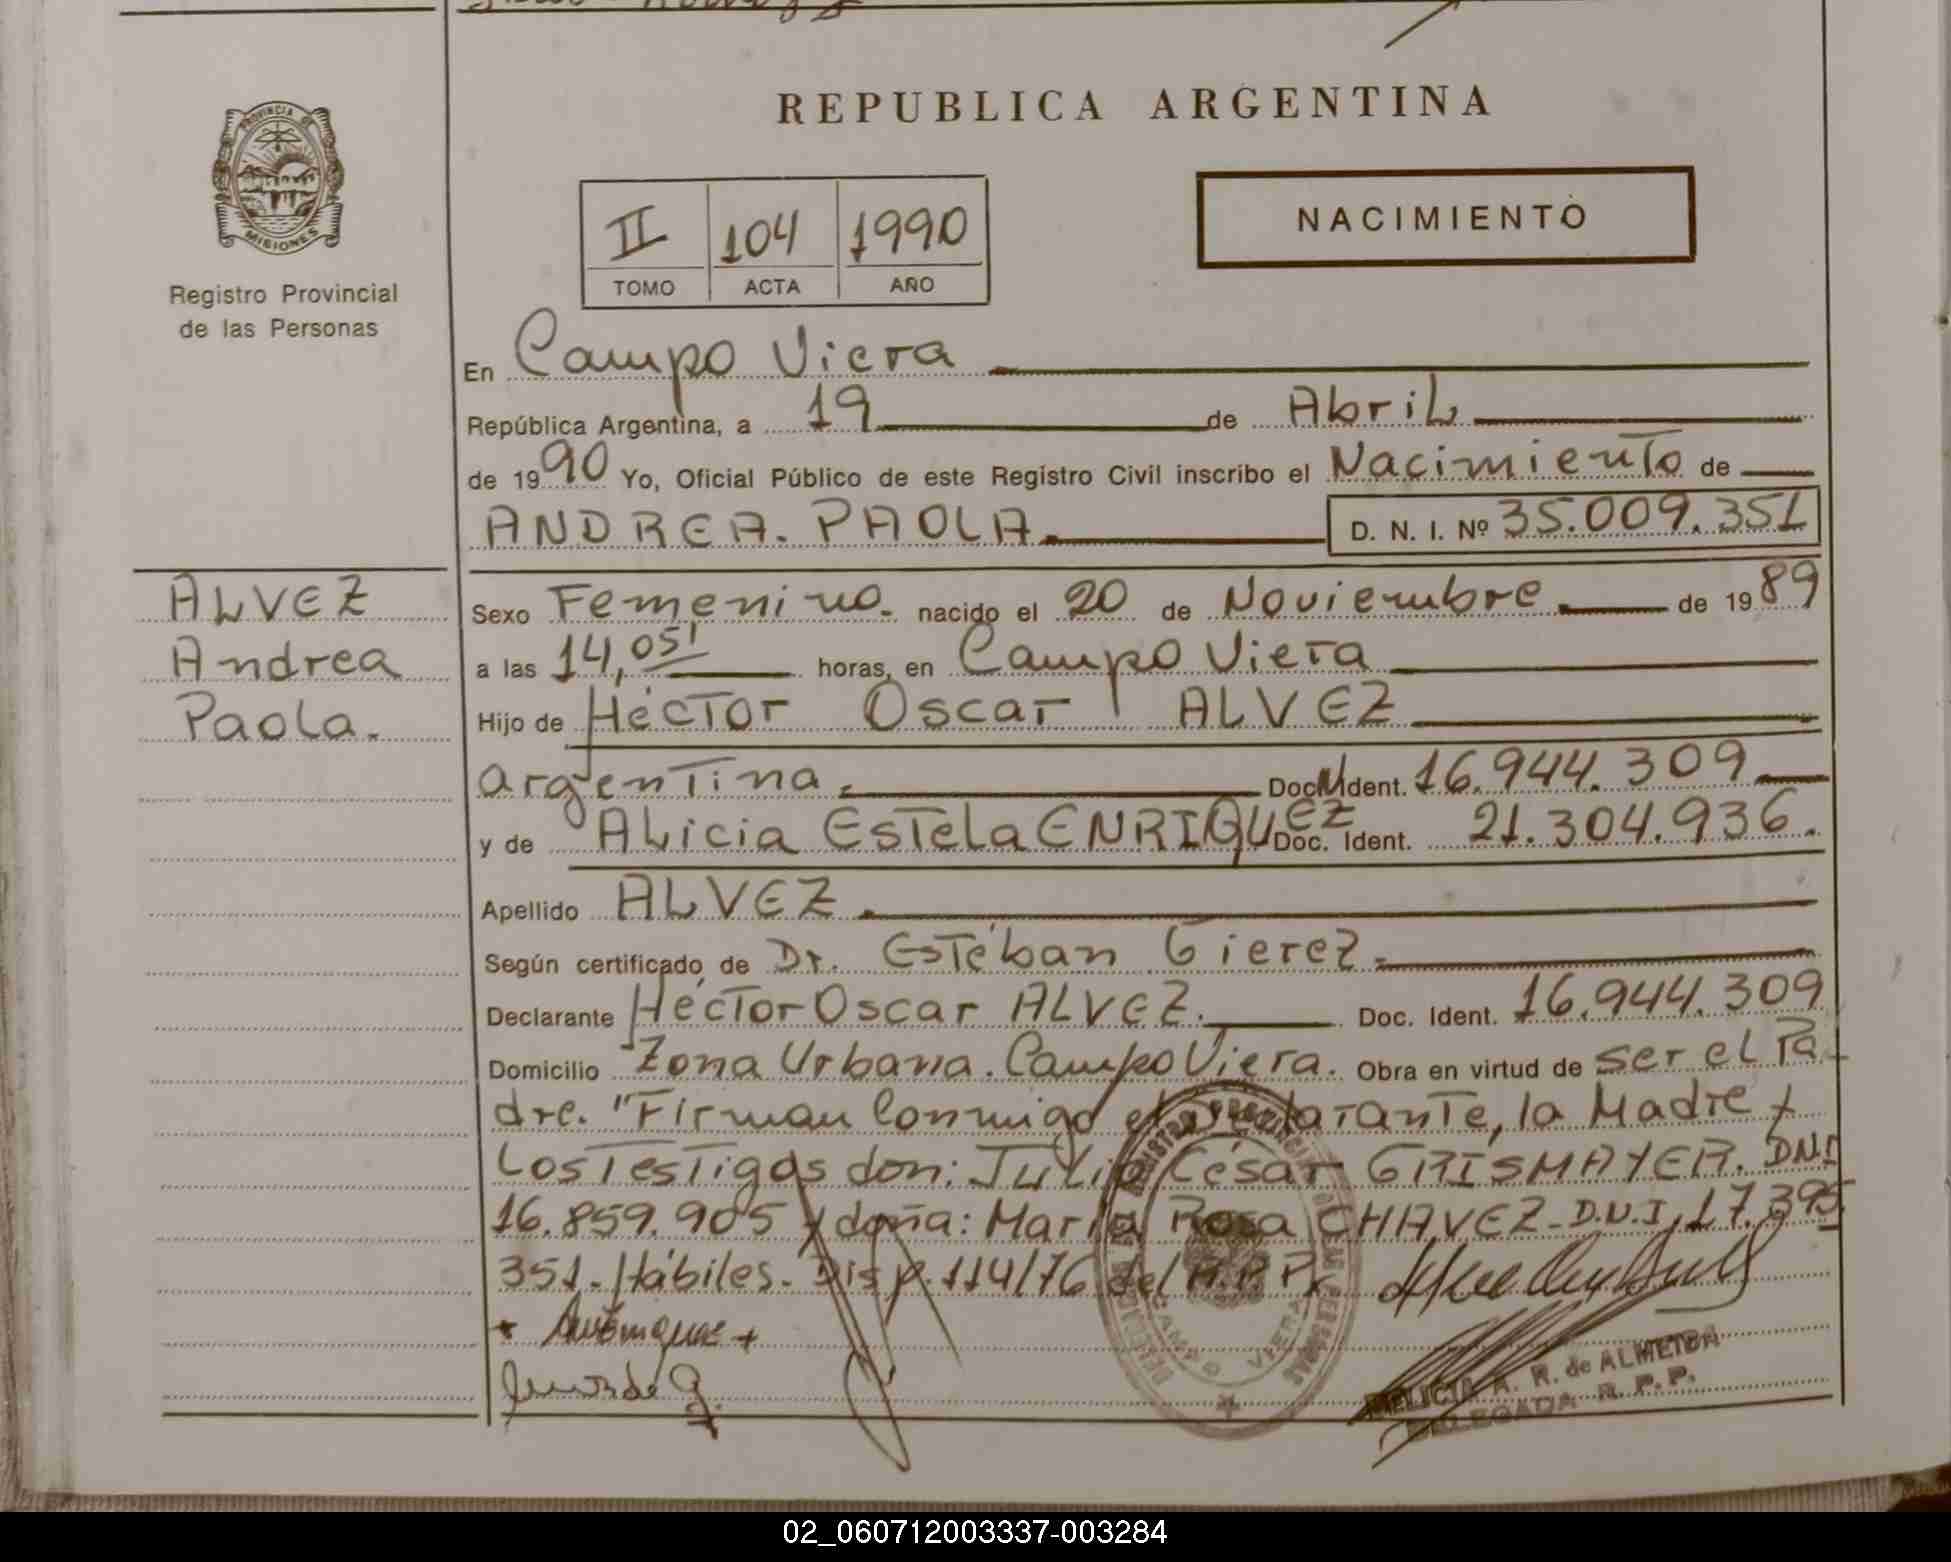 REPUBLICA ARGENTINA
PROVINCIA DE
MISIONES
Registro Provincial
de las Personas
II 104 1990
TOMO ACTA AÑO
NACIMIENTO
En Campo Viera
República Argentina, a 19 de Abril
de 1990 Yo, Oficial Público de este Registro Civil inscribo el Nacimiento de
ANDREA. PAOLA. D. N. I. Nº 35.009.351
ALVEZ
Andrea
Paola.
Sexo Femenino. nacido el 20 de Noviembre. de 1989
a las 14,05' horas, en Campo Viera
Hijo de Héctor Oscar ALVEZ
argentina. Doc. Ident. 16.944.309
y de Alicia Estela ENRIQUEZ Doc. Ident. 21.304.936.
Apellido ALVEZ.
Según certificado de Dr. Estéban Gierez.
Declarante Héctor Oscar ALVEZ. Doc. Ident. 16.944.309
Domicilio Zona Urbana. Campo Viera. Obra en virtud de ser el Pa-
dre. "Firman Conmigo el declarante, la Madre y
Los Testigos don: Julio César GRISMAYER. DNI
16.859.905 y doña: María Rosa CHAVEZ. D.N.I. 17.395.
351. Hábiles. Disp. 114/76 del R.P.P.
CAMPO VIERA
A. R. de ALMEIDA
DELEGADA R. P. P.
02_060712003337-003284